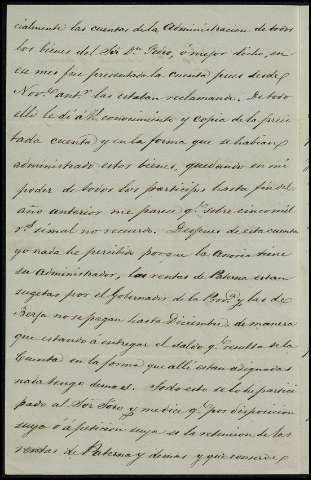 cialmente las cuentas de la Administracion de todos
los bienes del Sor Dn Pedro, ó mejor dicho, en
ese mes fue presentada la cuenta pues desde
Nov.e antr las estaban reclamando. De todo
ello le di á V. conocimiento y copia de la preci
tada cuenta y en la forma que se habian
administrado estos bienes, quedando en mi
poder de todos los participes hasta fin del
año anterior me parece q.e sobre cinco mil
r.s si mal no recuerdo. Despues de esta cuenta
yo nada he percibido porque la Anoria tiene
su administrador, las rentas de Paterna estan
sugetas por el Gobernador de la Prov.a y las de
Berja no se pagan hasta Diciembre, de manera
que estando á entregar el saldo q.e resulta de la
Cuenta en la forma que alli estan asignadas
nada tengo demas. Todo esto se lo he partici
pado al Sor Toro y me dice q.e por disposicion
suya ó á peticion suya es la retencion de las
rentas de Paterna y demas y que conserve